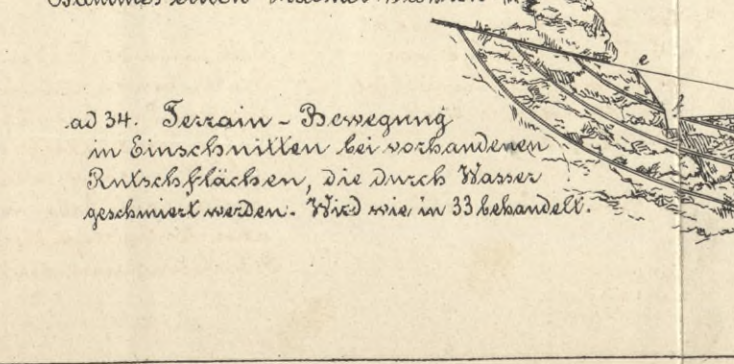 einen
ad 34. Terrain - Bewegung
in Einschnitten bei vorhandenen
Rutschflächen, die durch Wasser
geschmiert werden. Wird wie in 33 behandelt.
e